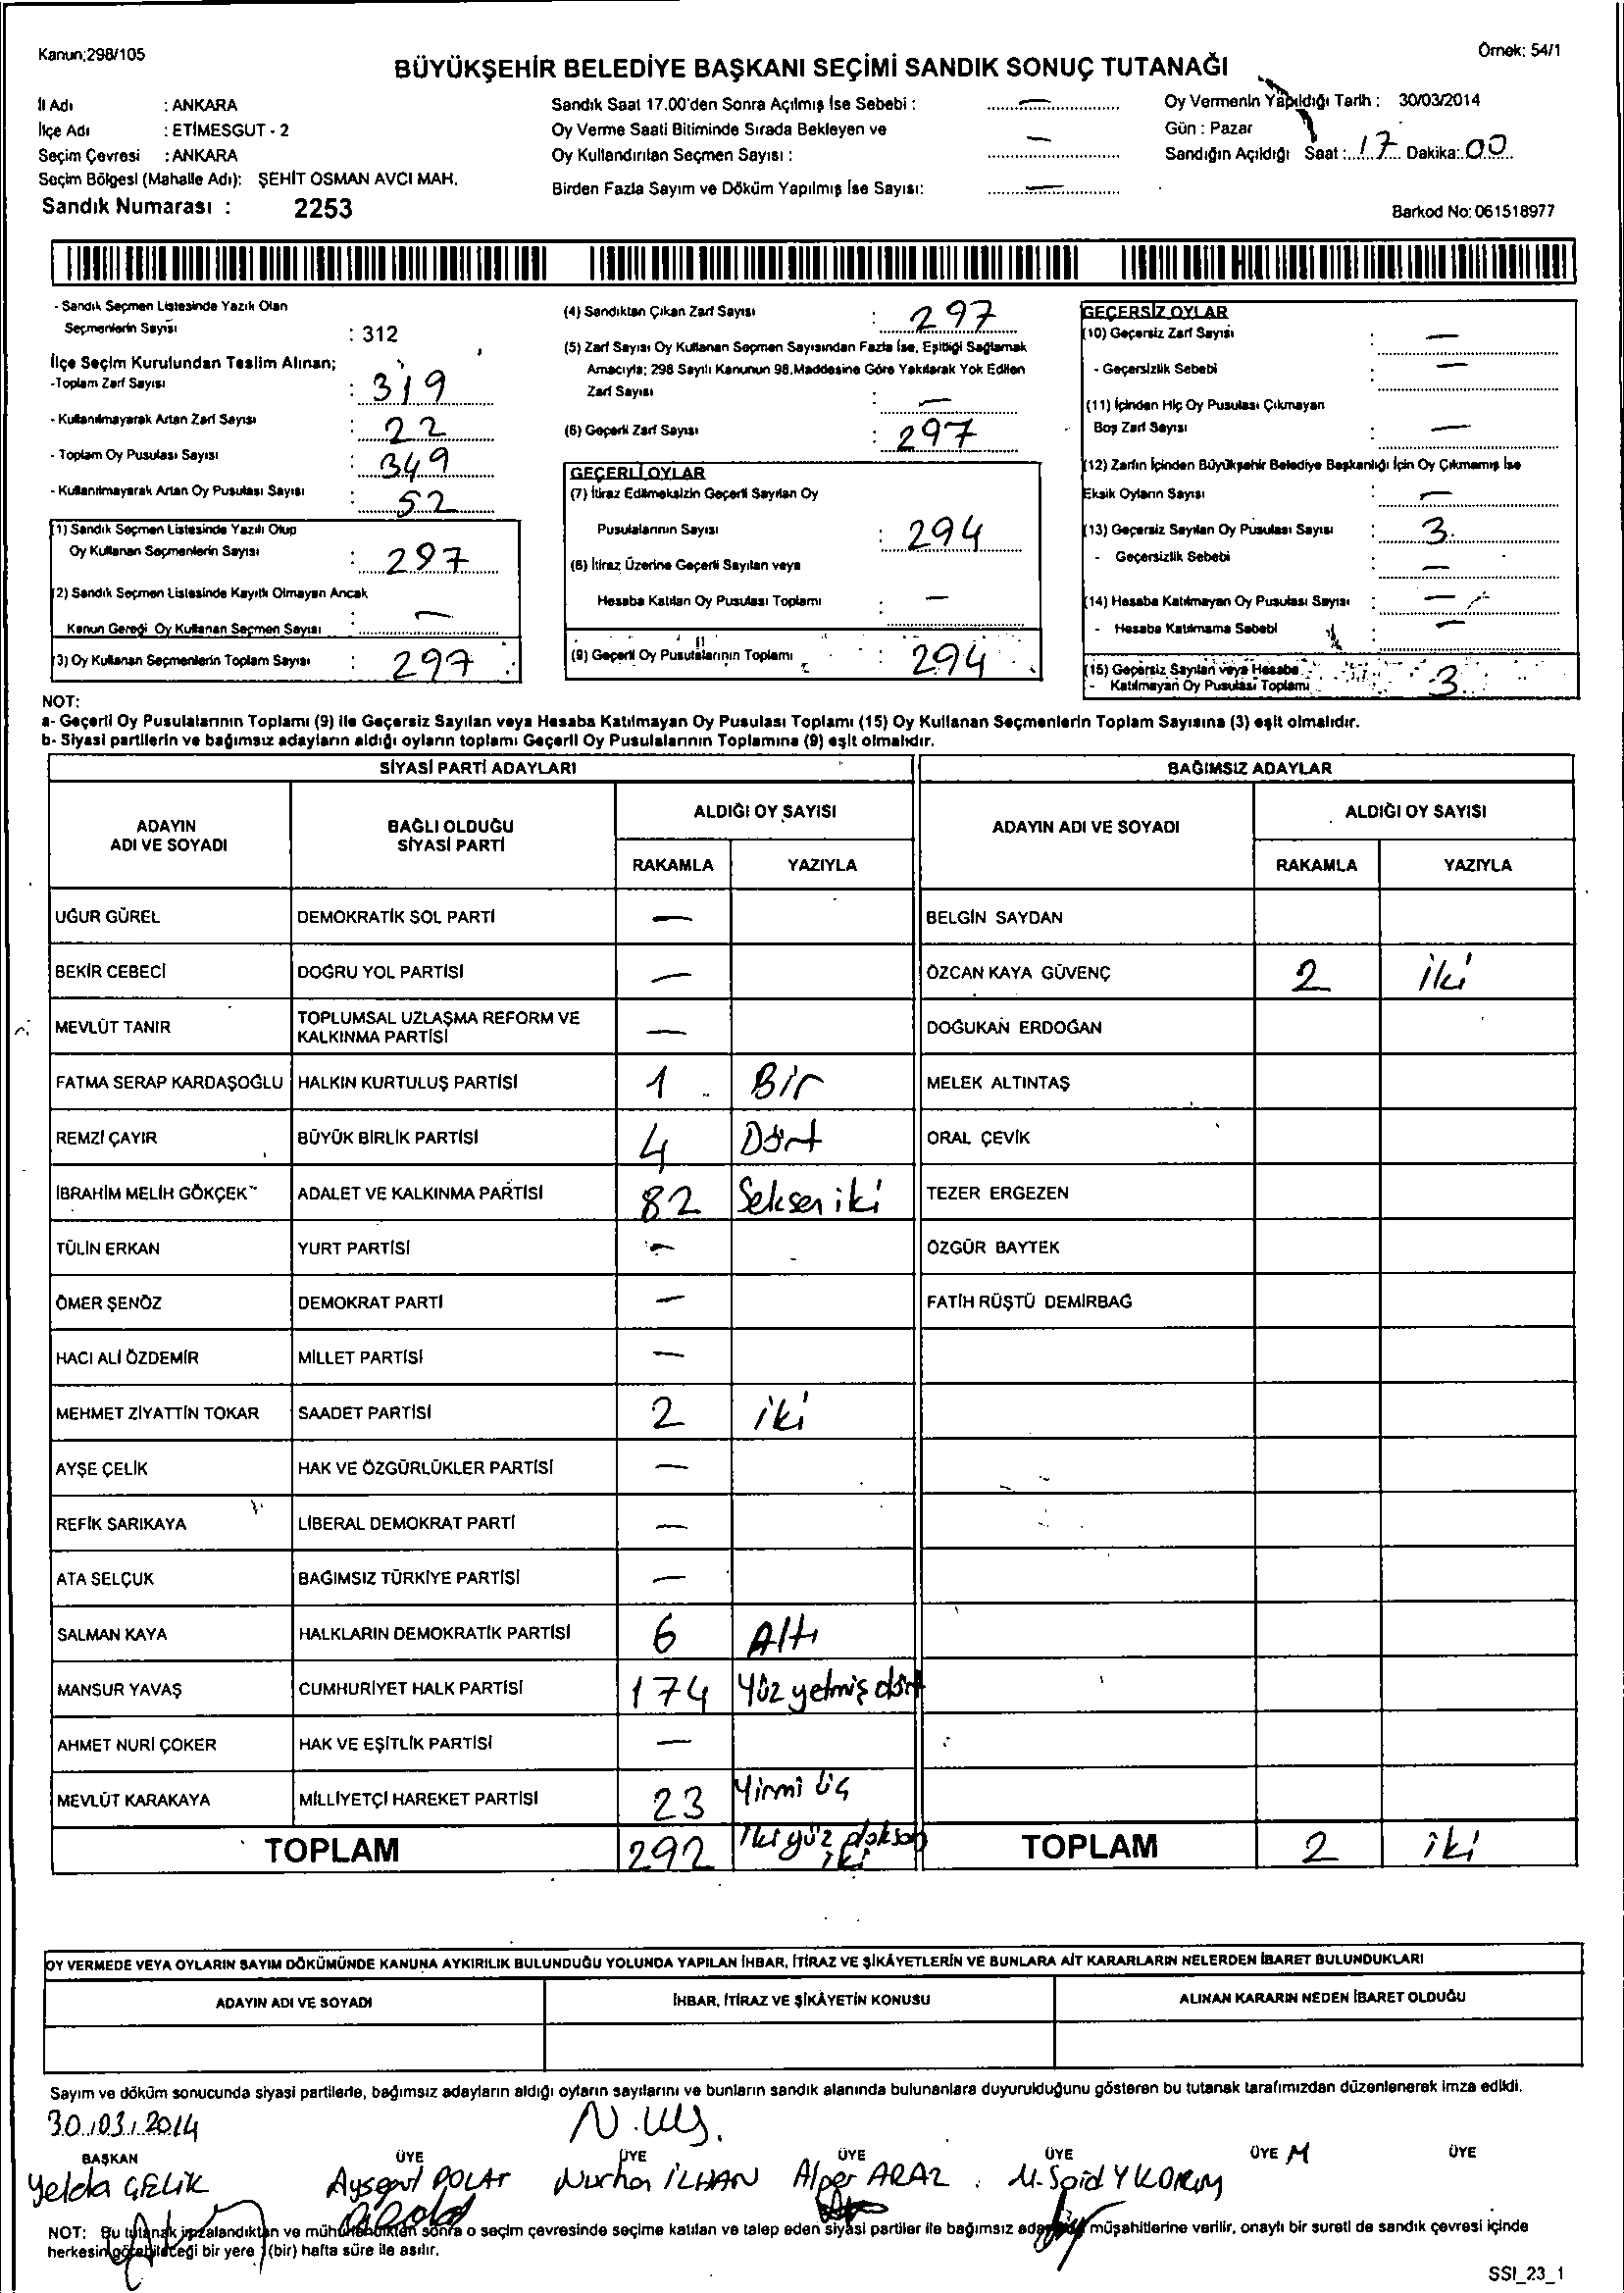 Kanun;298/105
Örnek: 54/1
BÜYÜKŞEHİR BELEDİYE BAŞKANI SEÇİMİ SANDIK SONUÇ TUTANAĞI
İl Adı : ANKARA
İlçe Adı : ETİMESGUT - 2
Seçim Çevresi : ANKARA
Seçim Bölgesi (Mahalle Adı): ŞEHİT OSMAN AVCI MAH.
Sandık Numarası : 2253
Sandık Saat 17.00'den Sonra Açılmış İse Sebebi : —
Oy Verme Saati Bitiminde Sırada Bekleyen ve
Oy Kullandırılan Seçmen Sayısı : —
Birden Fazla Sayım ve Döküm Yapılmış İse Sayısı: —
Oy Vermenin Yapıldığı Tarih : 30/03/2014
Gün : Pazar
Sandığın Açıldığı Saat : 17 Dakika: 00
Barkod No: 061518977
- Sandık Seçmen Listesinde Yazılı Olan
Seçmenlerin Sayısı : 312
İlçe Seçim Kurulundan Teslim Alınan;
-Toplam Zarf Sayısı : 319
- Kullanılmayarak Artan Zarf Sayısı : 22
- Toplam Oy Pusulası Sayısı : 349
- Kullanılmayarak Artan Oy Pusulası Sayısı : 52
(1) Sandık Seçmen Listesinde Yazılı Olup
Oy Kullanan Seçmenlerin Sayısı : 297
(2) Sandık Seçmen Listesinde Kayıtlı Olmayan Ancak
Kanun Gereği Oy Kullanan Seçmen Sayısı : —
(3) Oy Kullanan Seçmenlerin Toplam Sayısı : 297
(4) Sandıktan Çıkan Zarf Sayısı : 297
(5) Zarf Sayısı Oy Kullanan Seçmen Sayısından Fazla İse, Eşitliği Sağlamak
Amacıyla; 298 Sayılı Kanunun 98.Maddesine Göre Yakılarak Yok Edilen
Zarf Sayısı : —
(6) Geçerli Zarf Sayısı : 297
GEÇERLİ OYLAR
(7) İtiraz Edilmeksizin Geçerli Sayılan Oy
Pusulalarının Sayısı : 294
(8) İtiraz Üzerine Geçerli Sayılan veya
Hesaba Katılan Oy Pusulası Toplamı : —
(9) Geçerli Oy Pusulalarının Toplamı : 294
GEÇERSİZ OYLAR
(10) Geçersiz Zarf Sayısı : —
- Geçersizlik Sebebi : —
(11) İçinden Hiç Oy Pusulası Çıkmayan
Boş Zarf Sayısı : —
(12) Zarfın İçinden Büyükşehir Belediye Başkanlığı İçin Oy Çıkmamış İse
Eksik Oyların Sayısı : —
(13) Geçersiz Sayılan Oy Pusulası Sayısı : 3
- Geçersizlik Sebebi : —
(14) Hesaba Katılmayan Oy Pusulası Sayısı : —
- Hesaba Katılmama Sebebi : —
(15) Geçersiz Sayılan veya Hesaba
- Katılmayan Oy Pusulası Toplamı : 3
NOT:
a- Geçerli Oy Pusulalarının Toplamı (9) ile Geçersiz Sayılan veya Hesaba Katılmayan Oy Pusulası Toplamı (15) Oy Kullanan Seçmenlerin Toplam Sayısına (3) eşit olmalıdır.
b- Siyasi partilerin ve bağımsız adayların aldığı oyların toplamı Geçerli Oy Pusulalarının Toplamına (9) eşit olmalıdır.
SİYASİ PARTİ ADAYLARI BAĞIMSIZ ADAYLAR
ADAYIN ADI VE SOYADI BAĞLI OLDUĞU SİYASİ PARTİ ALDIĞI OY SAYISI ADAYIN ADI VE SOYADI ALDIĞI OY SAYISI
RAKAMLA YAZIYLA RAKAMLA YAZIYLA
UĞUR GÜREL DEMOKRATİK SOL PARTİ — BELGİN SAYDAN
BEKİR CEBECİ DOĞRU YOL PARTİSİ — ÖZCAN KAYA GÜVENÇ 2 iki
MEVLÜT TANIR TOPLUMSAL UZLAŞMA REFORM VE KALKINMA PARTİSİ — DOĞUKAN ERDOĞAN
FATMA SERAP KARDAŞOĞLU HALKIN KURTULUŞ PARTİSİ 1 Bir MELEK ALTINTAŞ
REMZİ ÇAYIR BÜYÜK BİRLİK PARTİSİ 4 Dört ORAL ÇEVİK
İBRAHİM MELİH GÖKÇEK ADALET VE KALKINMA PARTİSİ 82 Seksen iki TEZER ERGEZEN
TÜLİN ERKAN YURT PARTİSİ — ÖZGÜR BAYTEK
ÖMER ŞENÖZ DEMOKRAT PARTİ — FATİH RÜŞTÜ DEMİRBAĞ
HACI ALİ ÖZDEMİR MİLLET PARTİSİ —
MEHMET ZİYATTİN TOKAR SAADET PARTİSİ 2 iki
AYŞE ÇELİK HAK VE ÖZGÜRLÜKLER PARTİSİ —
REFİK SARIKAYA LİBERAL DEMOKRAT PARTİ —
ATA SELÇUK BAĞIMSIZ TÜRKİYE PARTİSİ —
SALMAN KAYA HALKLARIN DEMOKRATİK PARTİSİ 6 Altı
MANSUR YAVAŞ CUMHURİYET HALK PARTİSİ 174 Yüz yetmiş dört
AHMET NURİ ÇOKER HAK VE EŞİTLİK PARTİSİ —
MEVLÜT KARAKAYA MİLLİYETÇİ HAREKET PARTİSİ 23 Yirmi üç
TOPLAM 292 İki yüz doksan iki TOPLAM 2 iki
OY VERMEDE VEYA OYLARIN SAYIM DÖKÜMÜNDE KANUNA AYKIRILIK BULUNDUĞU YOLUNDA YAPILAN İHBAR, İTİRAZ VE ŞİKÂYETLERİN VE BUNLARA AİT KARARLARIN NELERDEN İBARET BULUNDUKLARI
ADAYIN ADI VE SOYADI İHBAR, İTİRAZ VE ŞİKÂYETİN KONUSU ALINAN KARARIN NEDEN İBARET OLDUĞU
Sayım ve döküm sonucunda siyasi partilerle, bağımsız adayların aldığı oyların sayılarını ve bunların sandık alanında bulunanlara duyurulduğunu gösteren bu tutanak tarafımızdan düzenlenerek imza edildi.
30/03/2014
BAŞKAN ÜYE ÜYE ÜYE ÜYE ÜYE ÜYE
Yelda ÇELİK Ayşegül POLAT Nurhan İLHAN Alper ARAZ M. Said
NOT: Bu tutanak imzalandıktan ve mühürlendikten sonra o seçim çevresinde seçime katılan ve talep eden siyasi partiler ile bağımsız aday müşahitlerine verilir, onaylı bir sureti de sandık çevresi içinde
herkesin görebileceği bir yere 1(bir) hafta süre ile asılır.
SSI_23_1